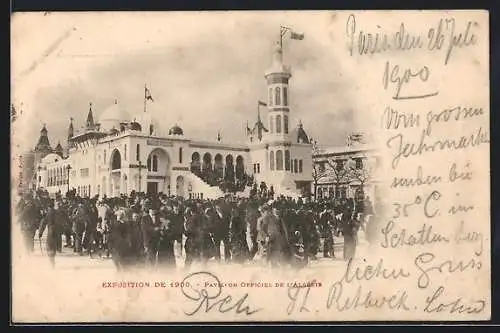 Paris den 26 Juli
1900
Vom grossen
Jahrmarkt
senden bei
35°C im
Schatten herz-
lichen Gruss
EXPOSITION DE 1900. - PAVILLON OFFICIEL DE L'ALGÉRIE